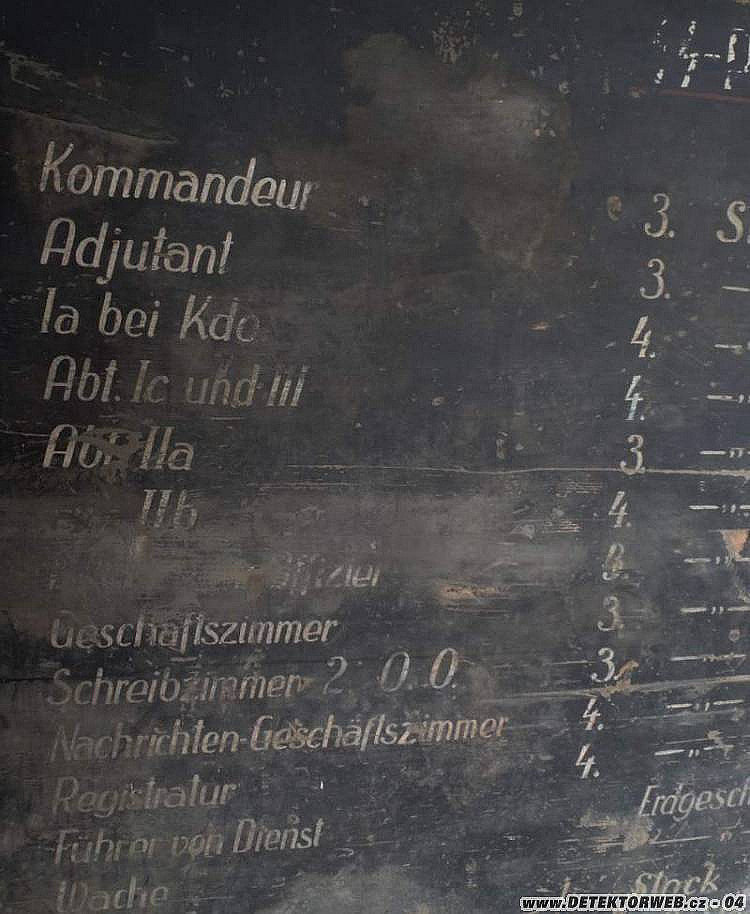 Kommandeur 3. S
Adjutant 3. —
Ia bei Kdo 4. —
Abt. Ic und III 4. — „
Abt. IIa 3. — „ —
IIb 4. — „ —
offizier 3. — „ —
Geschäftszimmer 3. — „ —
Schreibzimmer 2. O.O. 3. — „ —
Nachrichten-Geschäftszimmer 4. — „ —
Registratur 4. — „ —
Führer von Dienst Erdgesch
Wache — „ —
1. Stock
www.DETEKTORWEB.cz - 04